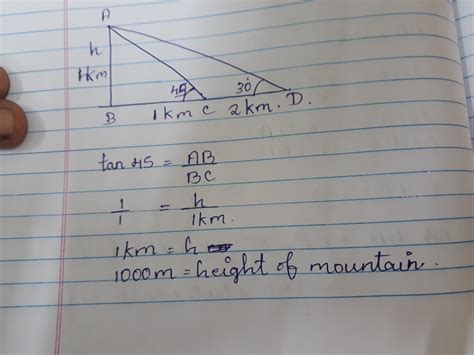 A
h
1km
45
30
B 1km C 2km. D.
tan 45 = AB
BC
1 = h
1 1km.
1km = h
1000m = height of mountain.